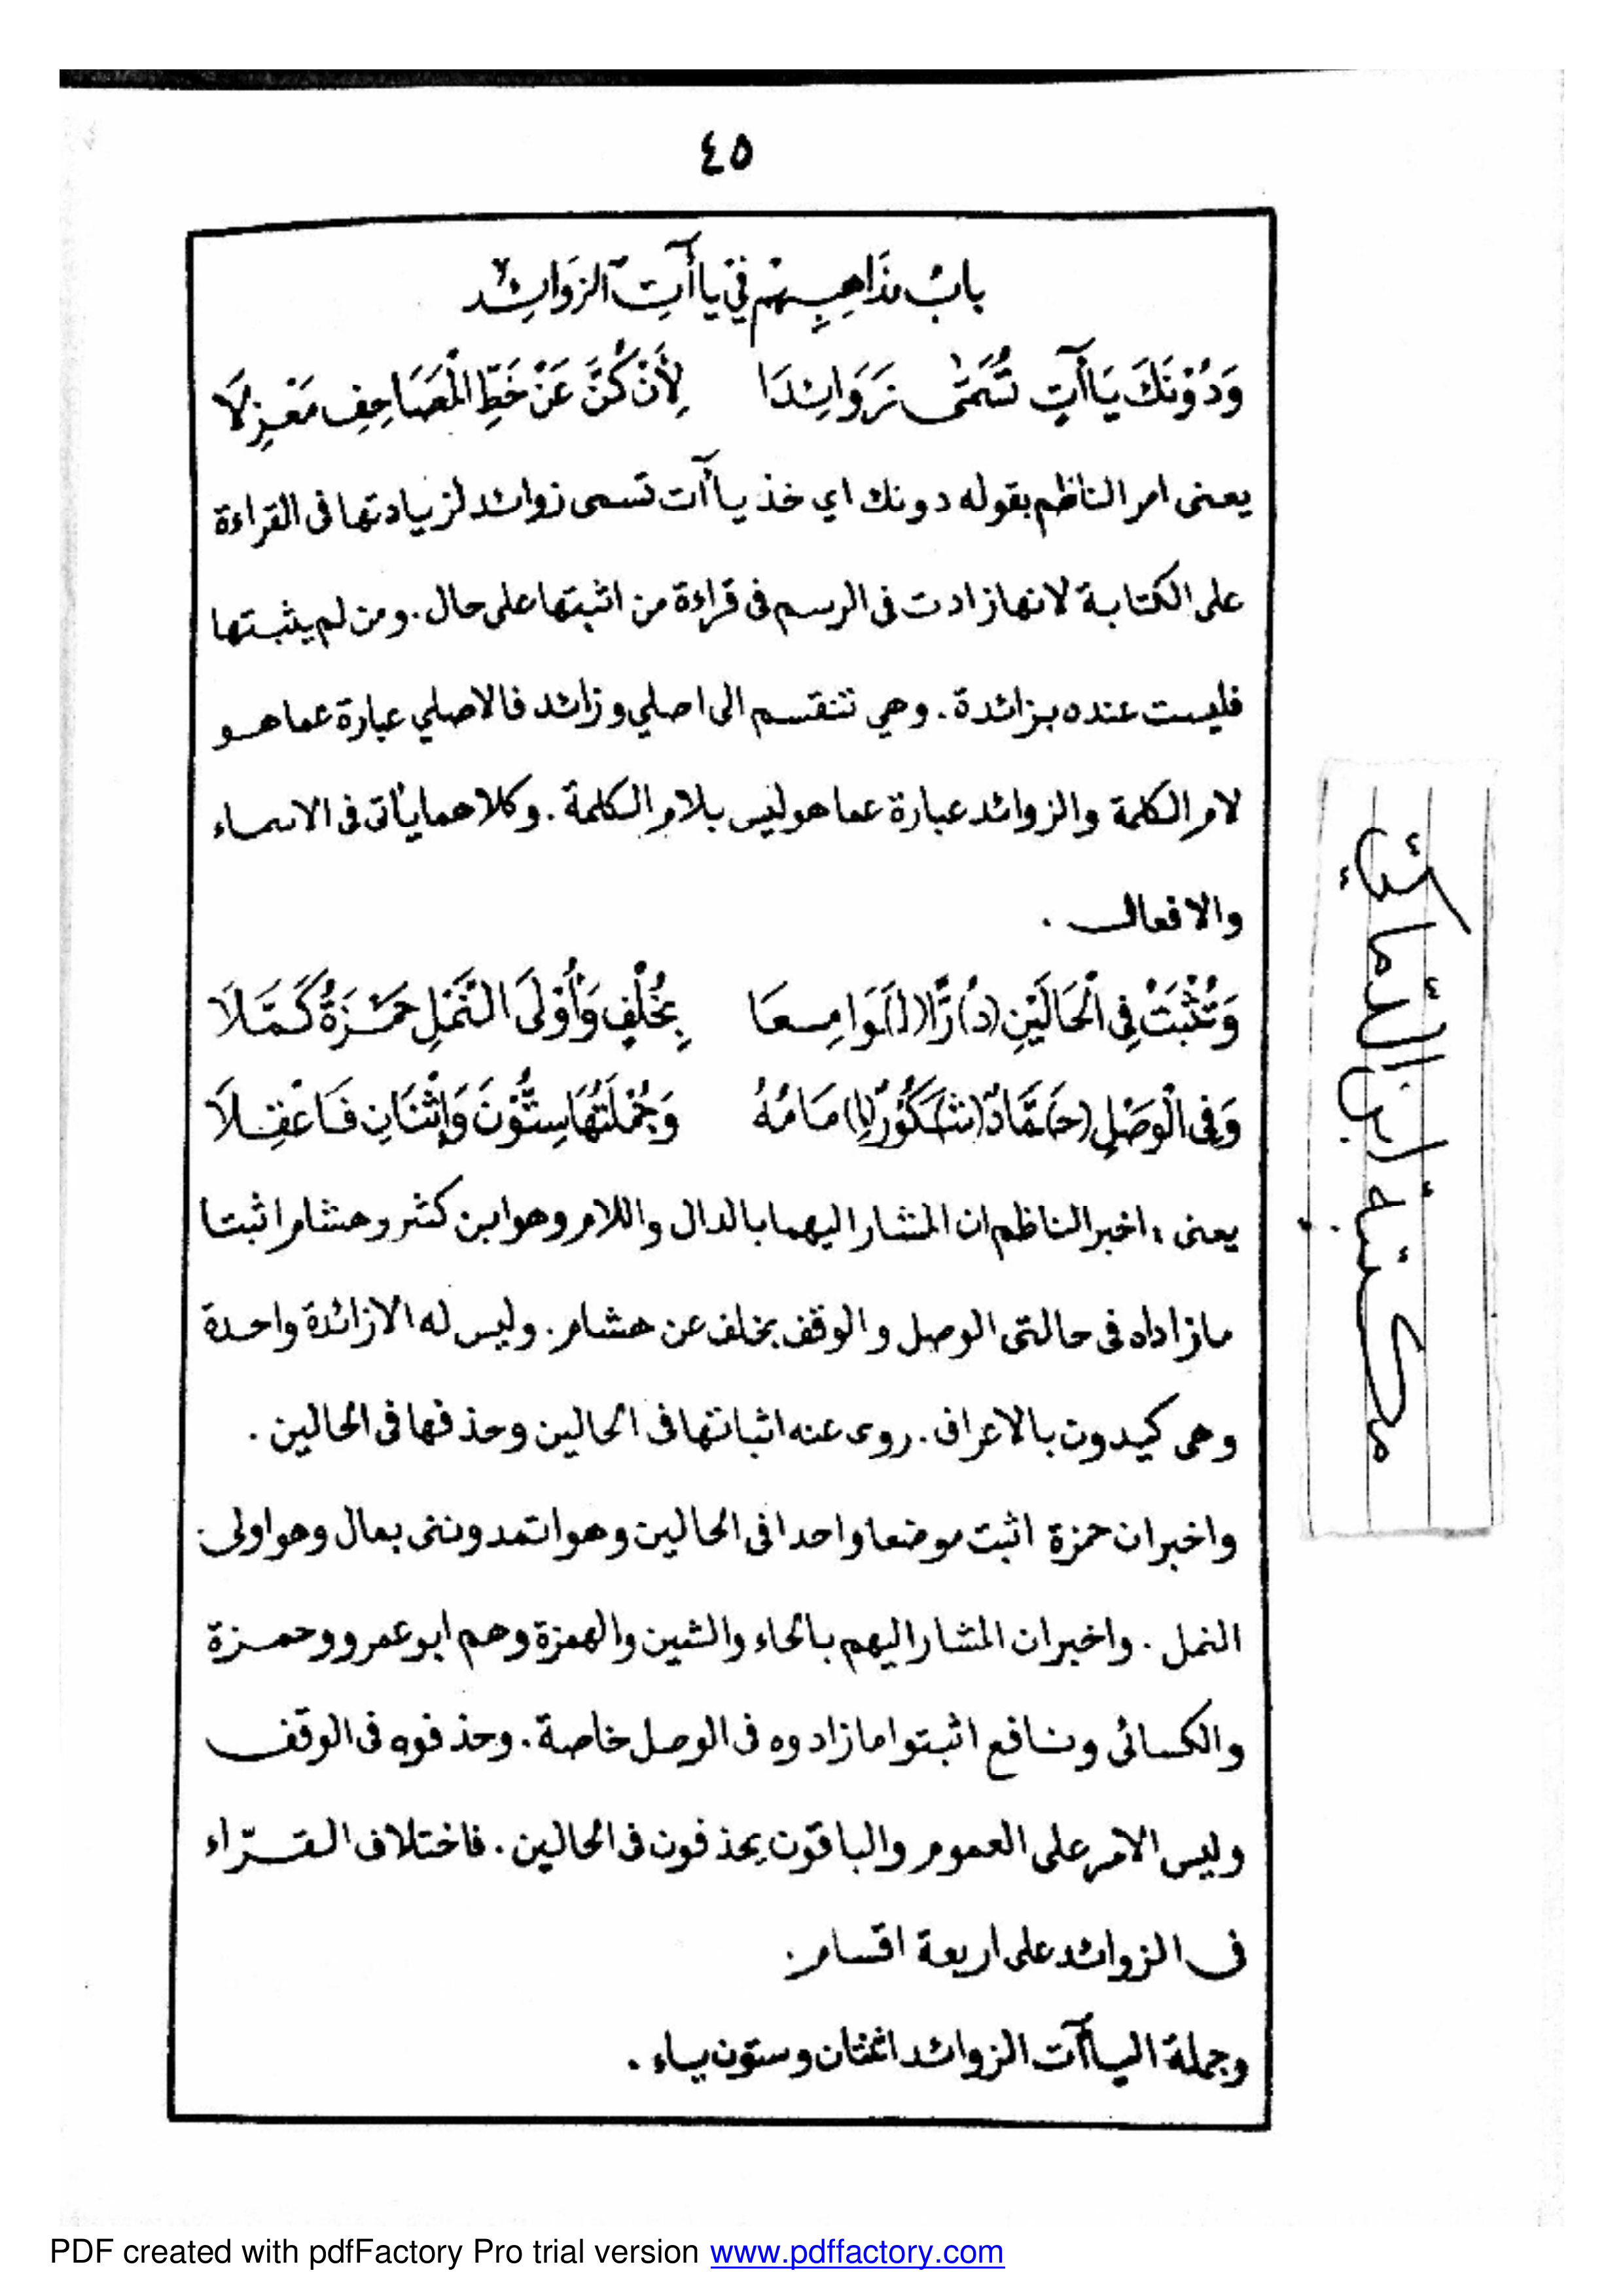 ٤٥
بابُ مذَاهِبِهِم في ياآتِ الزَوائِد
وَدُوْنَكَ يَاآتٍ تُسَمّٰى زَوَائِدَا لِأَنْ كُنَّ عَنْ خَطِّ الْمَصَاحِفِ مَعْزِلَا
يعنى امر الناظم بقوله دونك اي خذ ياآت تسمى زوائد لزيادتها فى القراءة
على الكتابة لانها زادت فى الرسم فى قراءة من اثبتها على حال . ومن لم يثبتها
فليست عنده بزائدة . وهي تنقسم الى اصلي وزائد فالاصلي عبارة عما هو
لام الكلمة والزوائد عبارة عما هو ليس بلام الكلمة . وكلاهما يأتى فى الاسماء
والافعال .
وَتُثْبَتُ فِى الْحَالَيْنِ (دُ)رًّا (لَ)وَامِعَا بِخُلْفٍ وَأُوْلَى النَّمْلِ حَمْزَةُ كَمَّلَا
وَفِى الْوَصْلِ (حَ)مَّادٌ (شَ)كُوْرٌ (إِ)مَامُهُ وَجُمْلَتُهَا سِتُّوْنَ وَاثْنَانِ فَاعْقِلَا
يعنى ، اخبر الناظم ان المشار اليهما بالدال واللام وهو ابن كثير وهشام اثبتا
مازاداه فى حالتى الوصل والوقف بخلف عن هشام . وليس له الا زائدة واحدة
وهى كيدون بالاعراف . روى عنه اثباتها فى الحالين وحذفها فى الحالين .
واخبر ان حمزة اثبت موضعا واحدا فى الحالين وهو اتمدوننى بمال وهو اولى
النمل . واخبر ان المشار اليهم بالحاء والشين والهمزة وهم ابو عمرو وحمزة
والكسائى ونافع اثبتوا مازادوه فى الوصل خاصة . وحذفوه فى الوقف
وليس الامر على العموم والباقون يحذفون فى الحالين . فاختلاف القرّاء
فى الزوائد على اربعة اقسام .
وجملة الياآت الزوائد اثنتان وستون ياء .
مكتبة ابن
PDF created with pdfFactory Pro trial version www.pdffactory.com